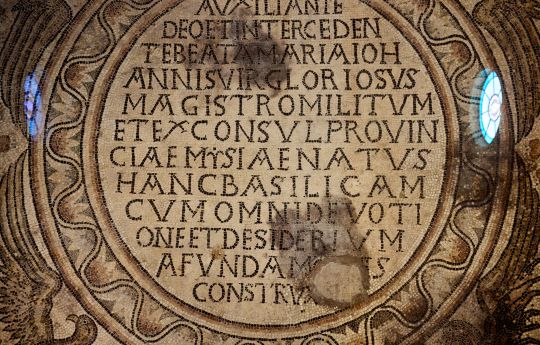 AVXILIANTE
DEOETINTERCEDEN
TEBEATAMARIAIOH
ANNISVIRGLORIOSVS
MAGISTROMILITVM
ETEXCONSVLPROVIN
CIAEMYSIAENATVS
HANCBASILICAM
CVMOMNIDEVOTI
ONEETDESIDERIVM
AFVNDAM
CONSTRV